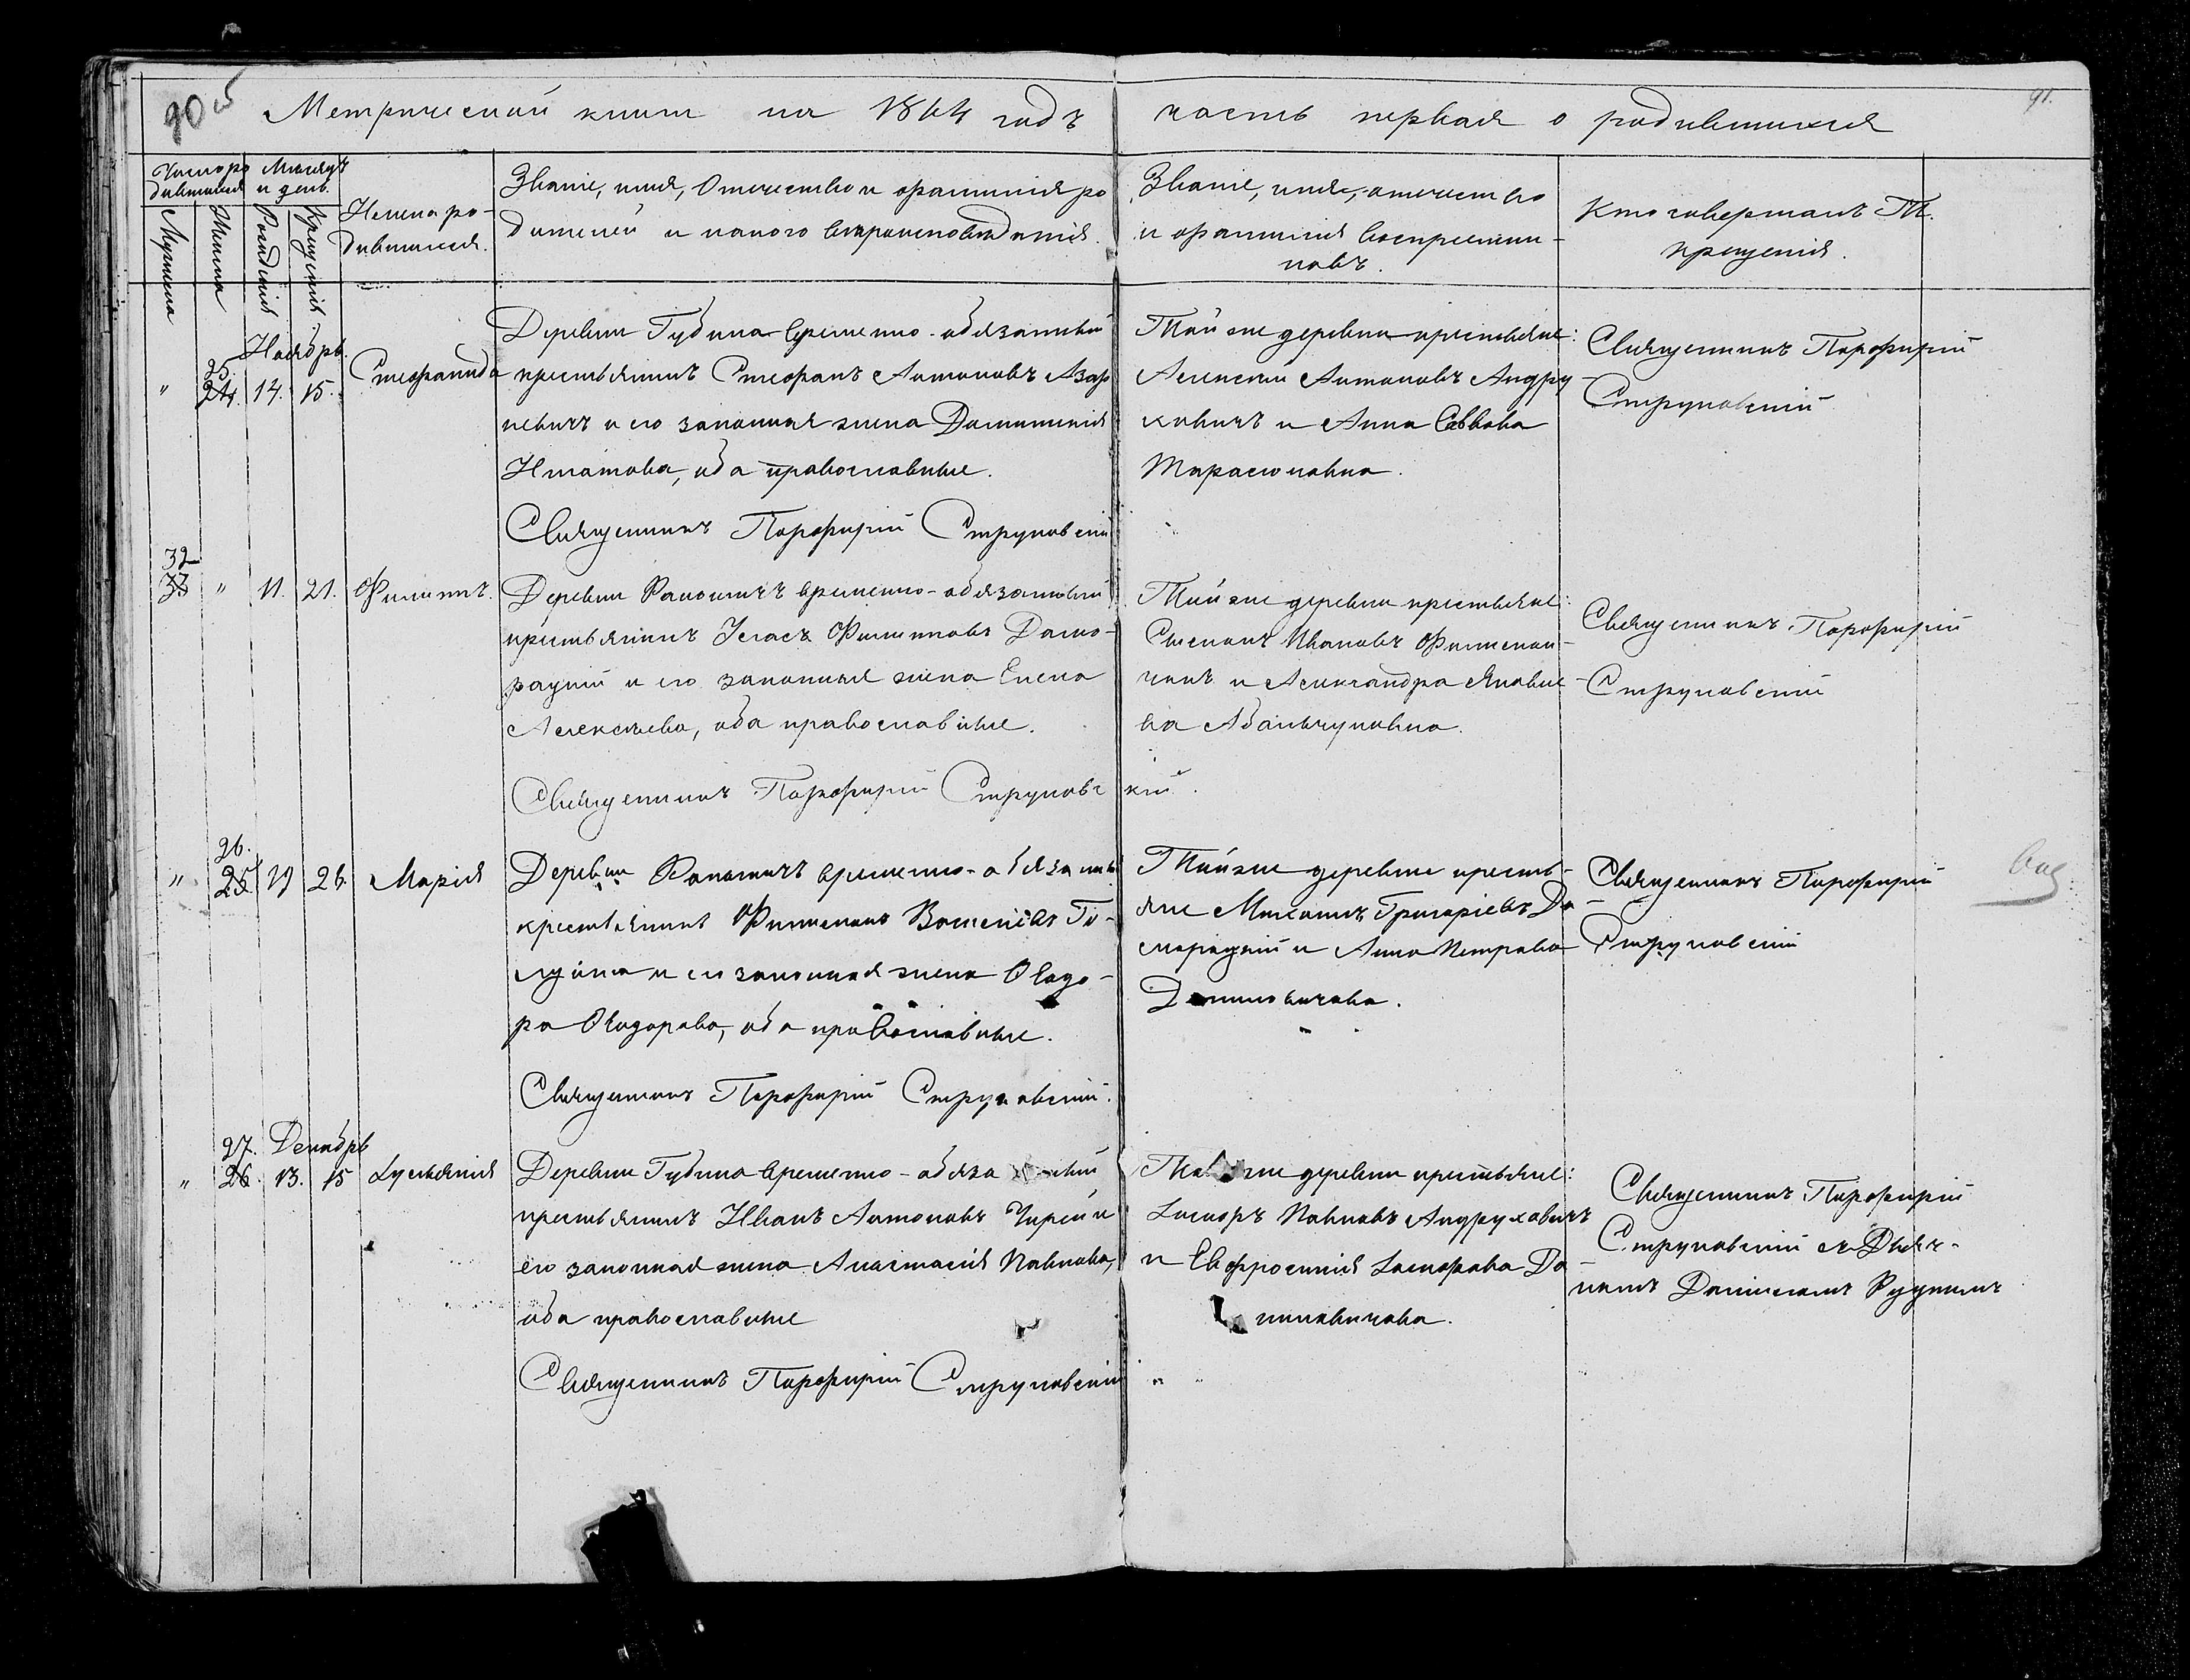 90 об
91.
Метрической книги на 1864 годъ часть первая о родившихся
Число ро
дившихся
Мѣсяцъ
и день.
Мужеска
Женска
Рожденія
Крещенія
Имена ро-
дившихся.
Званіе, имя, Отчество и фамилія ро
дителей и какого вѣроисповѣданія.
Званіе, имя, отчество
и фамилія воспреемни-
ковъ.
Кто совершалъ Т.
крещенія.
Ноябрь.
" 25. 24. 14. 15. Стефанида
Деревни Губина временно-обязанный
крестьянинъ Стефанъ Антоновъ Азар
кевичъ и его законная жена Домникія
Игнатова, оба православные.
Священникъ Порфирій Струковскій
Той же деревни крестьяне:
Алексѣй Антоновъ Андру
ховичъ и Анна Саввова
Тарасюковна.
Священникъ Порфирій
Струковскій
32
33 " 11. 21. Филиппъ.
Деревни временно-обязанный
крестьянинъ Филипповъ Дамо-
рацкій и его законная жена Елена
Алексѣева, оба православные.
Священникъ Порфирій Струковскій.
Той же деревни крестьяне:
Степанъ Ивановъ Филимон-
чикъ и Александра Яковле
ва Абальчуковна.
Священникъ Порфирій
Струковскій
" 26. 25 19 26. Марія
Деревни временно-обязанный
крестьянинъ Филимонъ Василіевъ Го-
и его законная жена Ѳеодо-
ра Ѳеодорова, оба православные.
Священникъ Порфирій Струковскій.
Той же деревни кресть-
яне Михаилъ Григоріевъ До-
морацкій и Анна Петрова
Даниловичова.
Священникъ Порфирій
Струковскій
Декабрь
" 27. 26. 13. 15 Лукьянія
Деревни Губина временно-обязанный
крестьянинъ Иванъ Антоновъ Чирей и
его законная жена Анастасія Павлова,
оба православные
Священникъ Порфирій Струковскій
Той же деревни крестьяне:
Павловъ Андруховичъ
и Евфросинія Да-
ниловичова.
Священникъ Порфирій
Струковскій съ Дьяч-
комъ